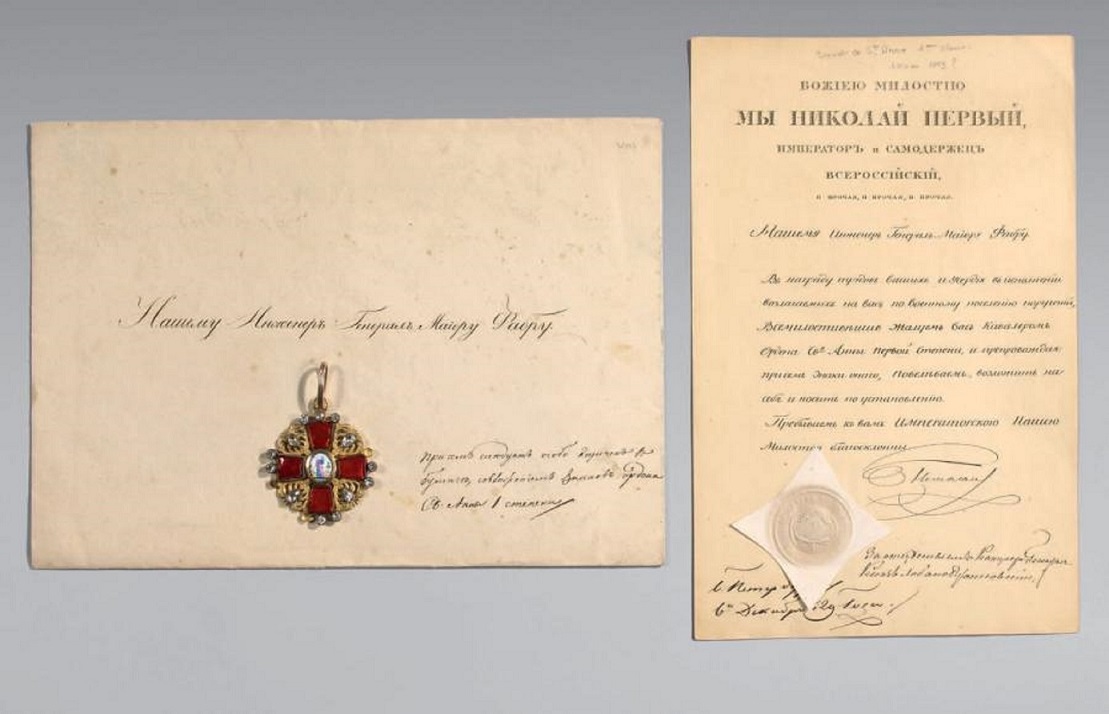 Нашему Инженеръ Генералъ Маіору Фабру.
при семъ следуетъ особо
ордена
Св. Анны 1 степени
БОЖІЕЮ МИЛОСТІЮ
МЫ НИКОЛАЙ ПЕРВЫЙ,
ИМПЕРАТОРЪ и САМОДЕРЖЕЦЪ
ВСЕРОССІЙСКІЙ,
И ПРОЧАЯ, И ПРОЧАЯ, И ПРОЧАЯ.
Нашему Инженеръ Генералъ-Маіору Фабру.
Въ награду трудовъ вашихъ и усердія въ исполненіи
возлагаемыхъ на васъ по военному поселенію порученій,
Всемилостивѣйше Жалуемъ Васъ Кавалеромъ
Ордена Свᵗᵒⁱ Анны первой Степени, и препровождая
при семъ Знаки онаго, Повелѣваемъ, возложить на
себя и носить по установленію.
Пребываемъ къ вамъ Императорскою Нашею
Милостію благосклонны
Николай
С. Петербургъ
6го Декабря 1829 Года.